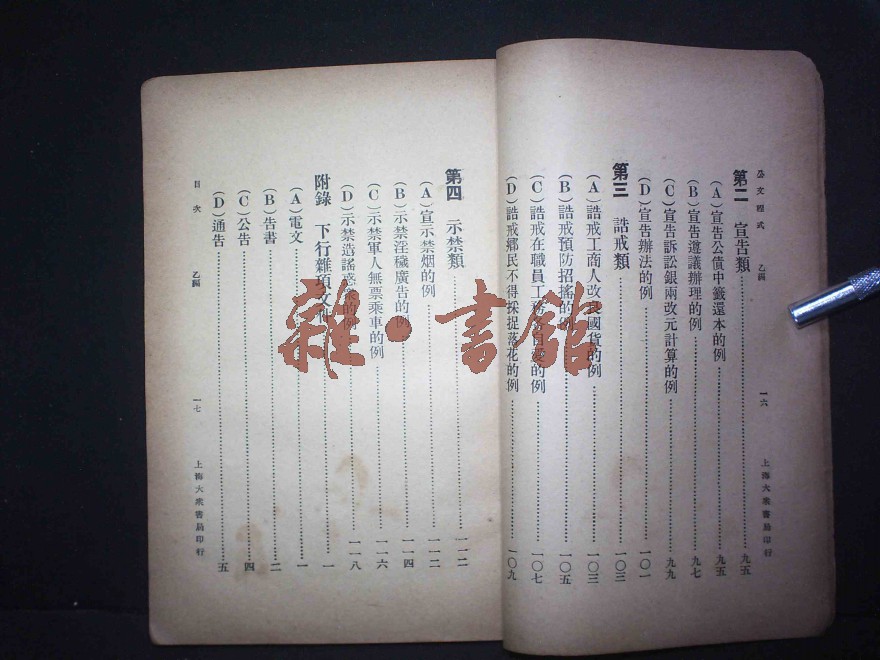 公文程式 乙編 一六 上海大衆書局印行
第二 宣告類 九五
(A)宣告公債中籤還本的例 九五
(B)宣告遵議辦理的例 九七
(C)宣告訴訟銀兩改元計算的例 九九
(D)宣告辦法的例 一〇一
第三 誥戒類 一〇三
(A)誥戒工商人改良國貨的例 一〇三
(B)誥戒預防招搖的例 一〇五
(C)誥戒在職員工 的例 一〇七
(D)誥戒鄉民不得採捉落花的例 一〇九
第四 示禁類 一一二
(A)宣示禁烟的例 一一二
(B)示禁淫穢廣告的例 一一四
(C)示禁軍人無票乘車的例 一一六
(D)示禁造謠惑衆的例 一一八
附錄 下行雜項文件 一
(A)電文 一
(B)告書 二
(C)公告 四
(D)通告 五
目次 乙編 一七 上海大衆書局印行
雜·書館